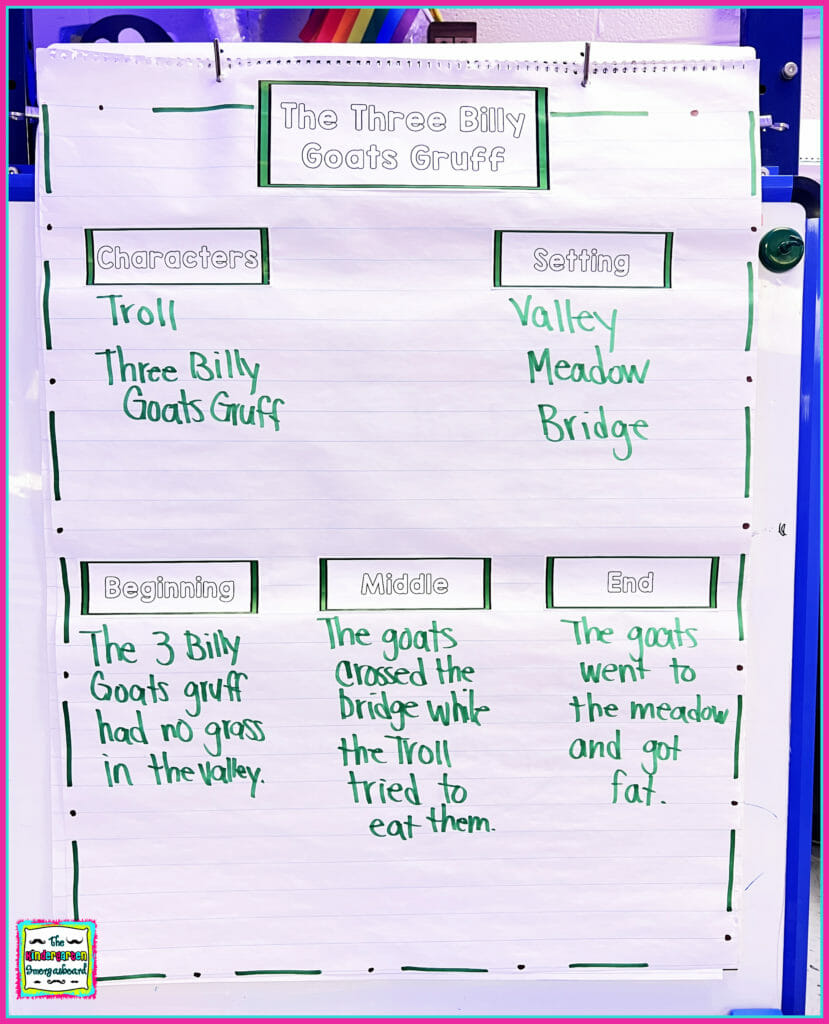 The Three Billy
Goats Gruff
Characters
Troll
Three Billy
Goats Gruff
Setting
Valley
Meadow
Bridge
Beginning
The 3 Billy
Goats gruff
had no grass
in the valley.
Middle
The goats
crossed the
bridge while
the Troll
tried to
eat them.
End
The goats
went to
the meadow
and got
fat.
The
Kindergarten
Smorgasboard